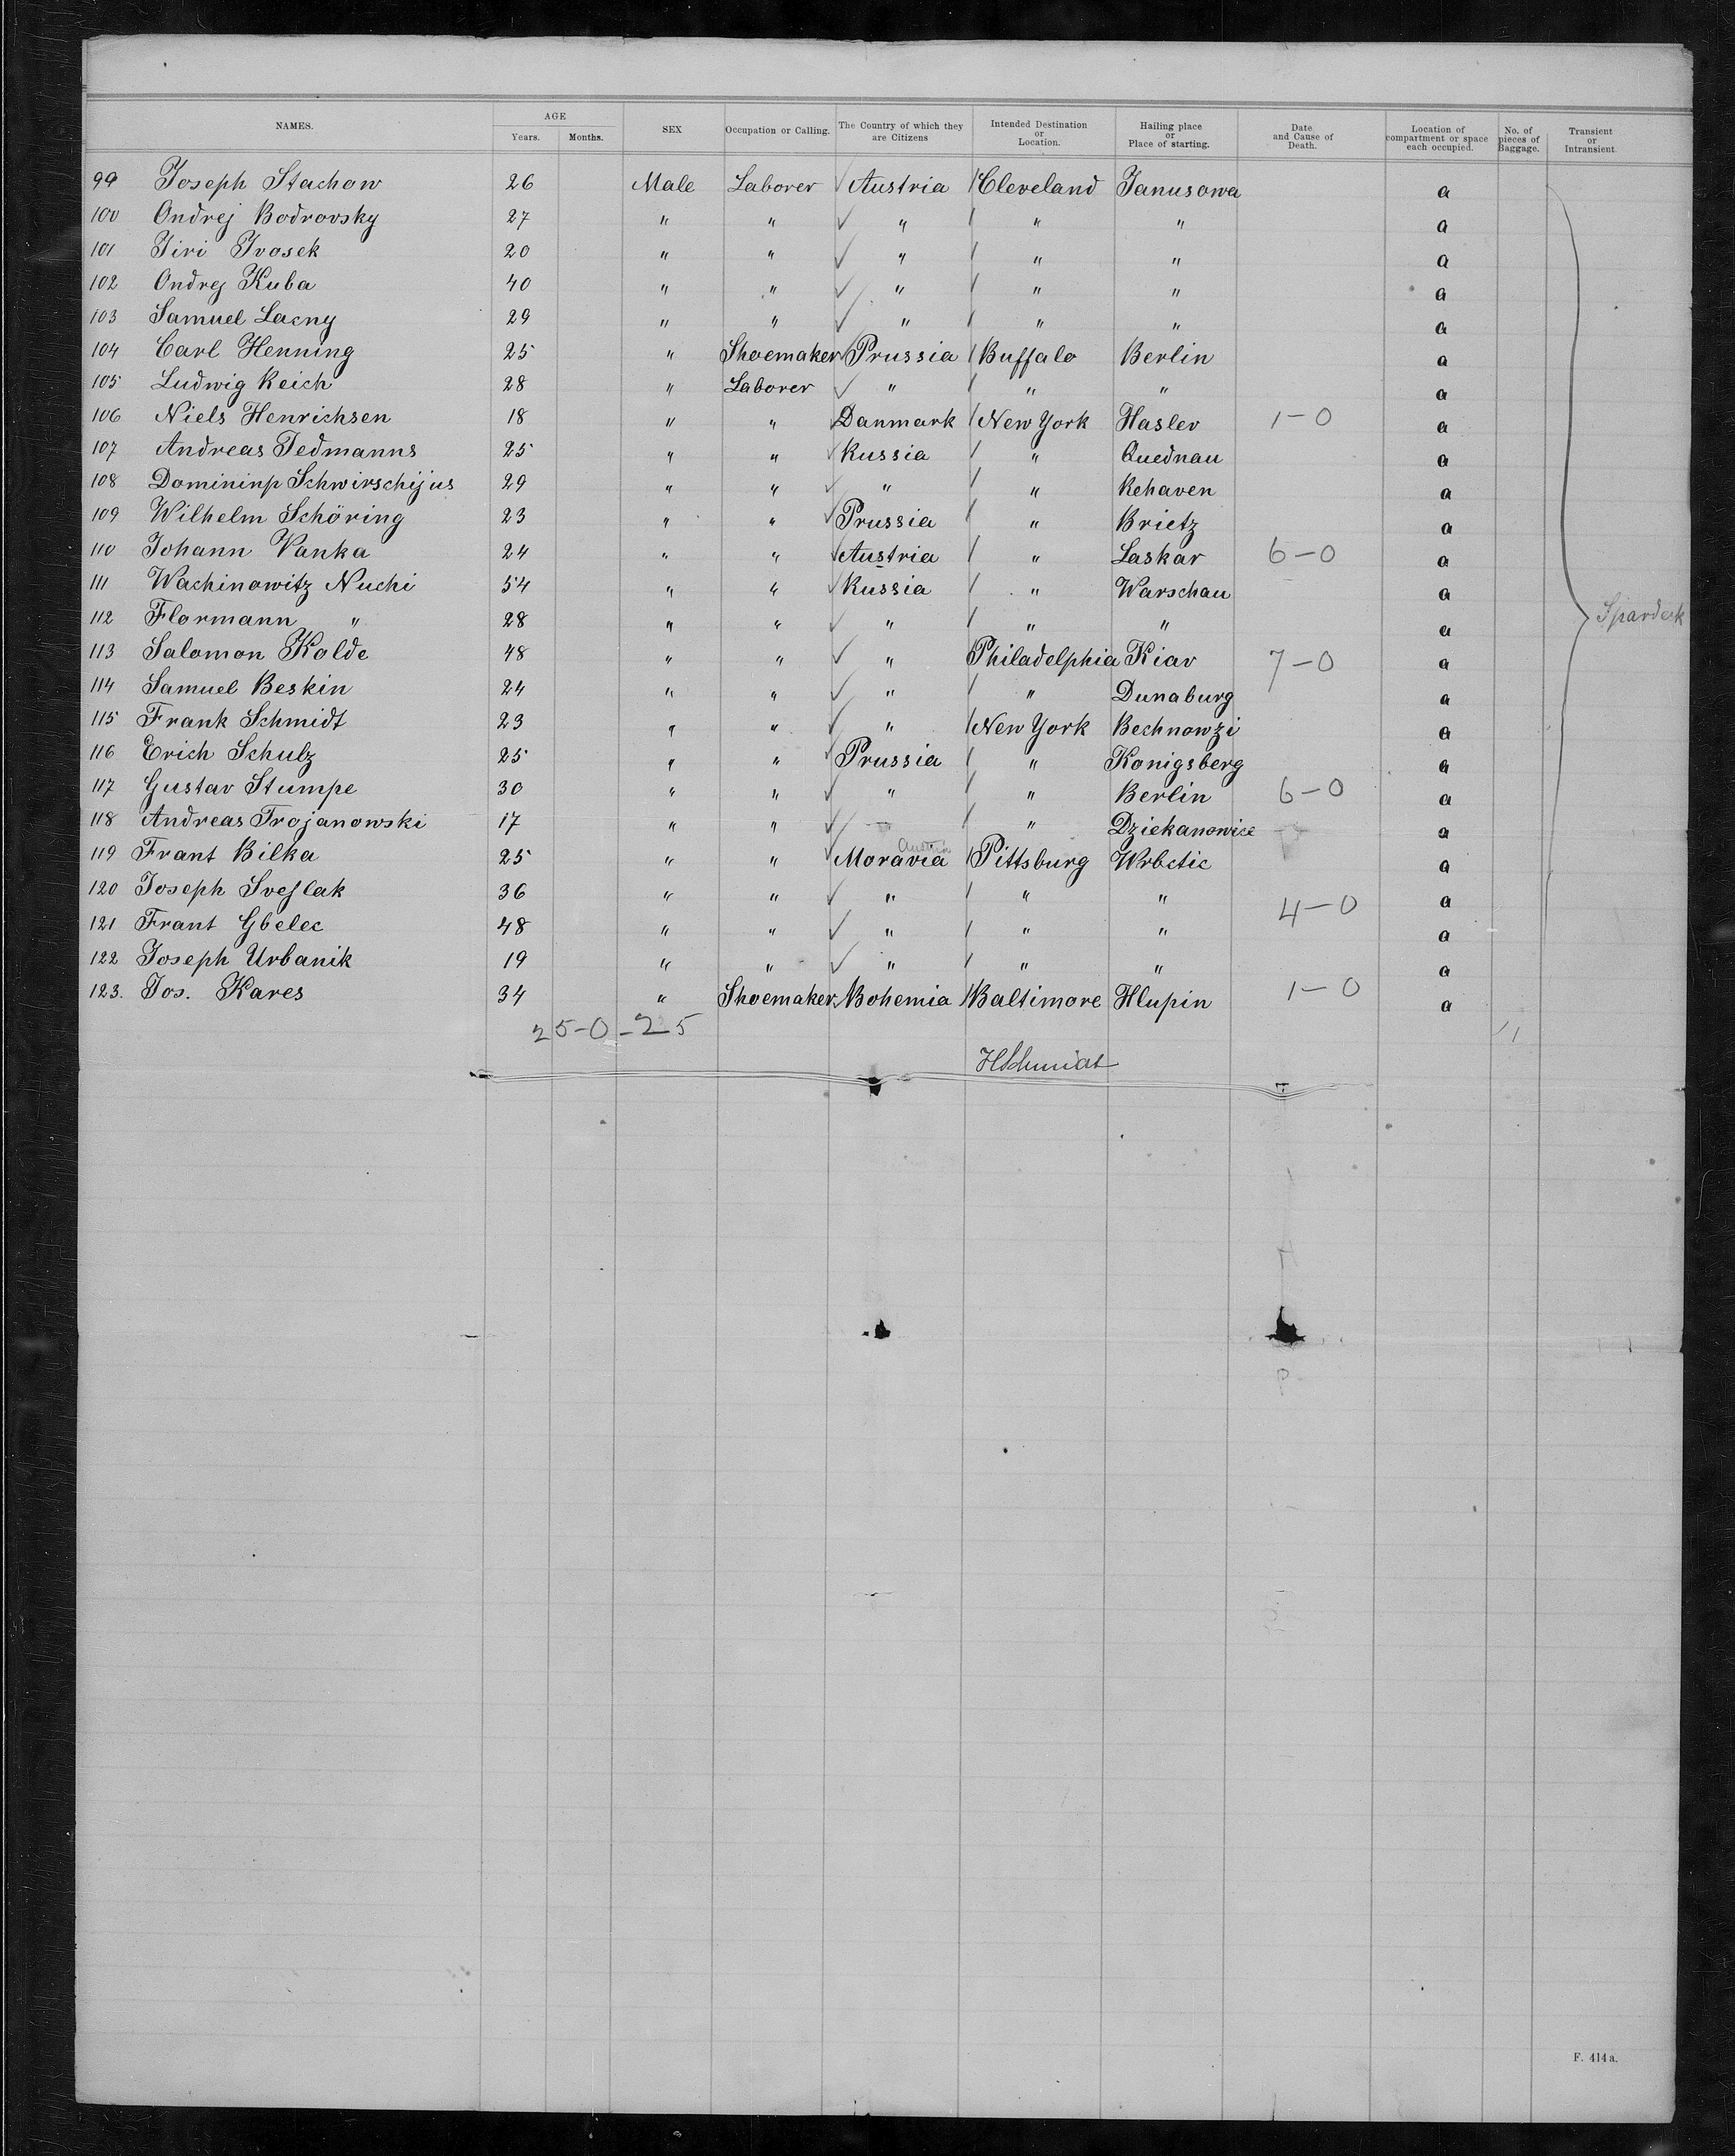 NAMES. AGE Years. Months. SEX Occupation or Calling. The Country of which they are Citizens Intended Destination or Location. Hailing place or Place of starting. Date and Cause of Death. Location of compartment or space each occupied. No. of pieces of Baggage. Transient or Intransient.
99 Joseph Stachow 26 Male Laborer Austria Cleveland Janusowa a
100 Ondrej Bodrovsky 27 " " " " " a
101 Jiri Ivosek 20 " " " " " a
102 Ondrej Kuba 40 " " " " " a
103 Samuel Lacny 29 " " " " " a
104 Carl Henning 25 " Shoemaker Prussia Buffalo Berlin a
105 Ludwig Reich 28 " Laborer " " " a
106 Niels Henrichsen 18 " " Danmark New York Haslev 1-0 a
107 Andreas Tedmanns 25 " " Russia " Quednau a
108 Domininp Schwirschijus 29 " " " " Rehaven a
109 Wilhelm Schöring 23 " " Prussia " Brietz a
110 Johann Vanka 24 " " Austria " Laskar 6-0 a
111 Wachinowitz Nuchi 54 " " Russia " Warschau a
112 Flormann " 28 " " " " " a Spardeck
113 Salomon Kolde 48 " " " Philadelphia Kiav 7-0 a
114 Samuel Beskin 24 " " " " Dunaburg a
115 Frank Schmidt 23 " " " New York Bechnowzi a
116 Erich Schulz 25 " " Prussia " Konigsberg a
117 Gustav Stumpe 30 " " " " Berlin 6-0 a
118 Andreas Trojanowski 17 " " " " Dziekanowice a
119 Frant Bilka 25 " " Moravia Austria Pittsburg Wrbctic a
120 Joseph Svejlak 36 " " " " " 4-0 a
121 Frant Gbelec 48 " " " " " a
122 Joseph Urbanik 19 " " " " " a
123. Jos. Kares 34 " Shoemaker Bohemia Baltimore Hlupin 1-0 a
25-0-25
HSchmidt
F. 414 a.